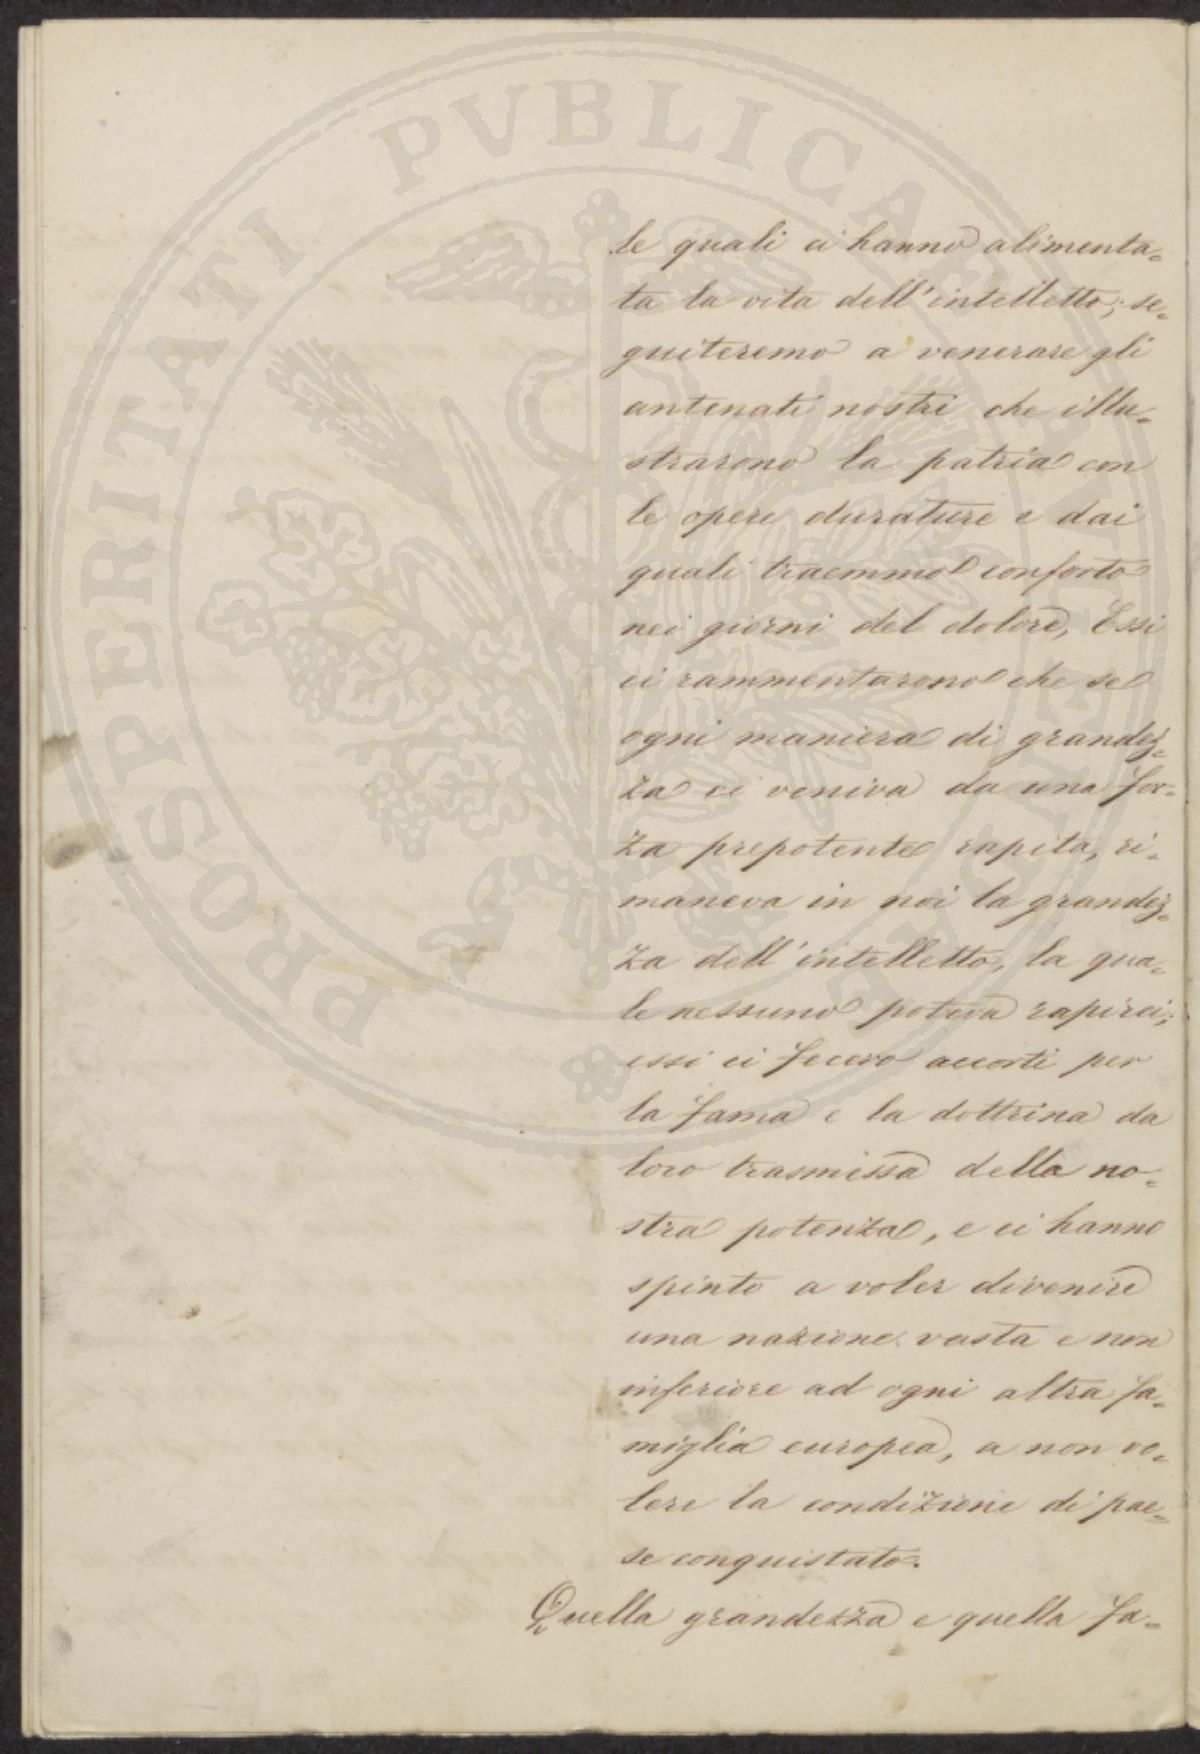 le quali ci hanno alimenta=
ta la vita dell'intelletto; se=
guiteremo a venerare gli
antenati nostri che illu=
strarono la patria con
le opere durature e dai
quali traemmo conforto
nei giorni del dolore. Essi
ci rammentarono che se
ogni maniera di grandez=
za ci veniva da una for=
za prepotente rapita, ri=
maneva in noi la grandez=
za dell'intelletto, la qua=
le nessuno poteva rapirci;
essi ci fecero accorti per
la fama e la dottrina da
loro trasmissa della no=
stra potenza, e ci hanno
spinto a voler divenire
una nazione vasta e non
inferiore ad ogni altra fa=
miglia europea, a non vo=
lere la condizione di pae=
se conquistato.
Quella grandezza e quella fa=
PROSPERITATI PVBLICAE